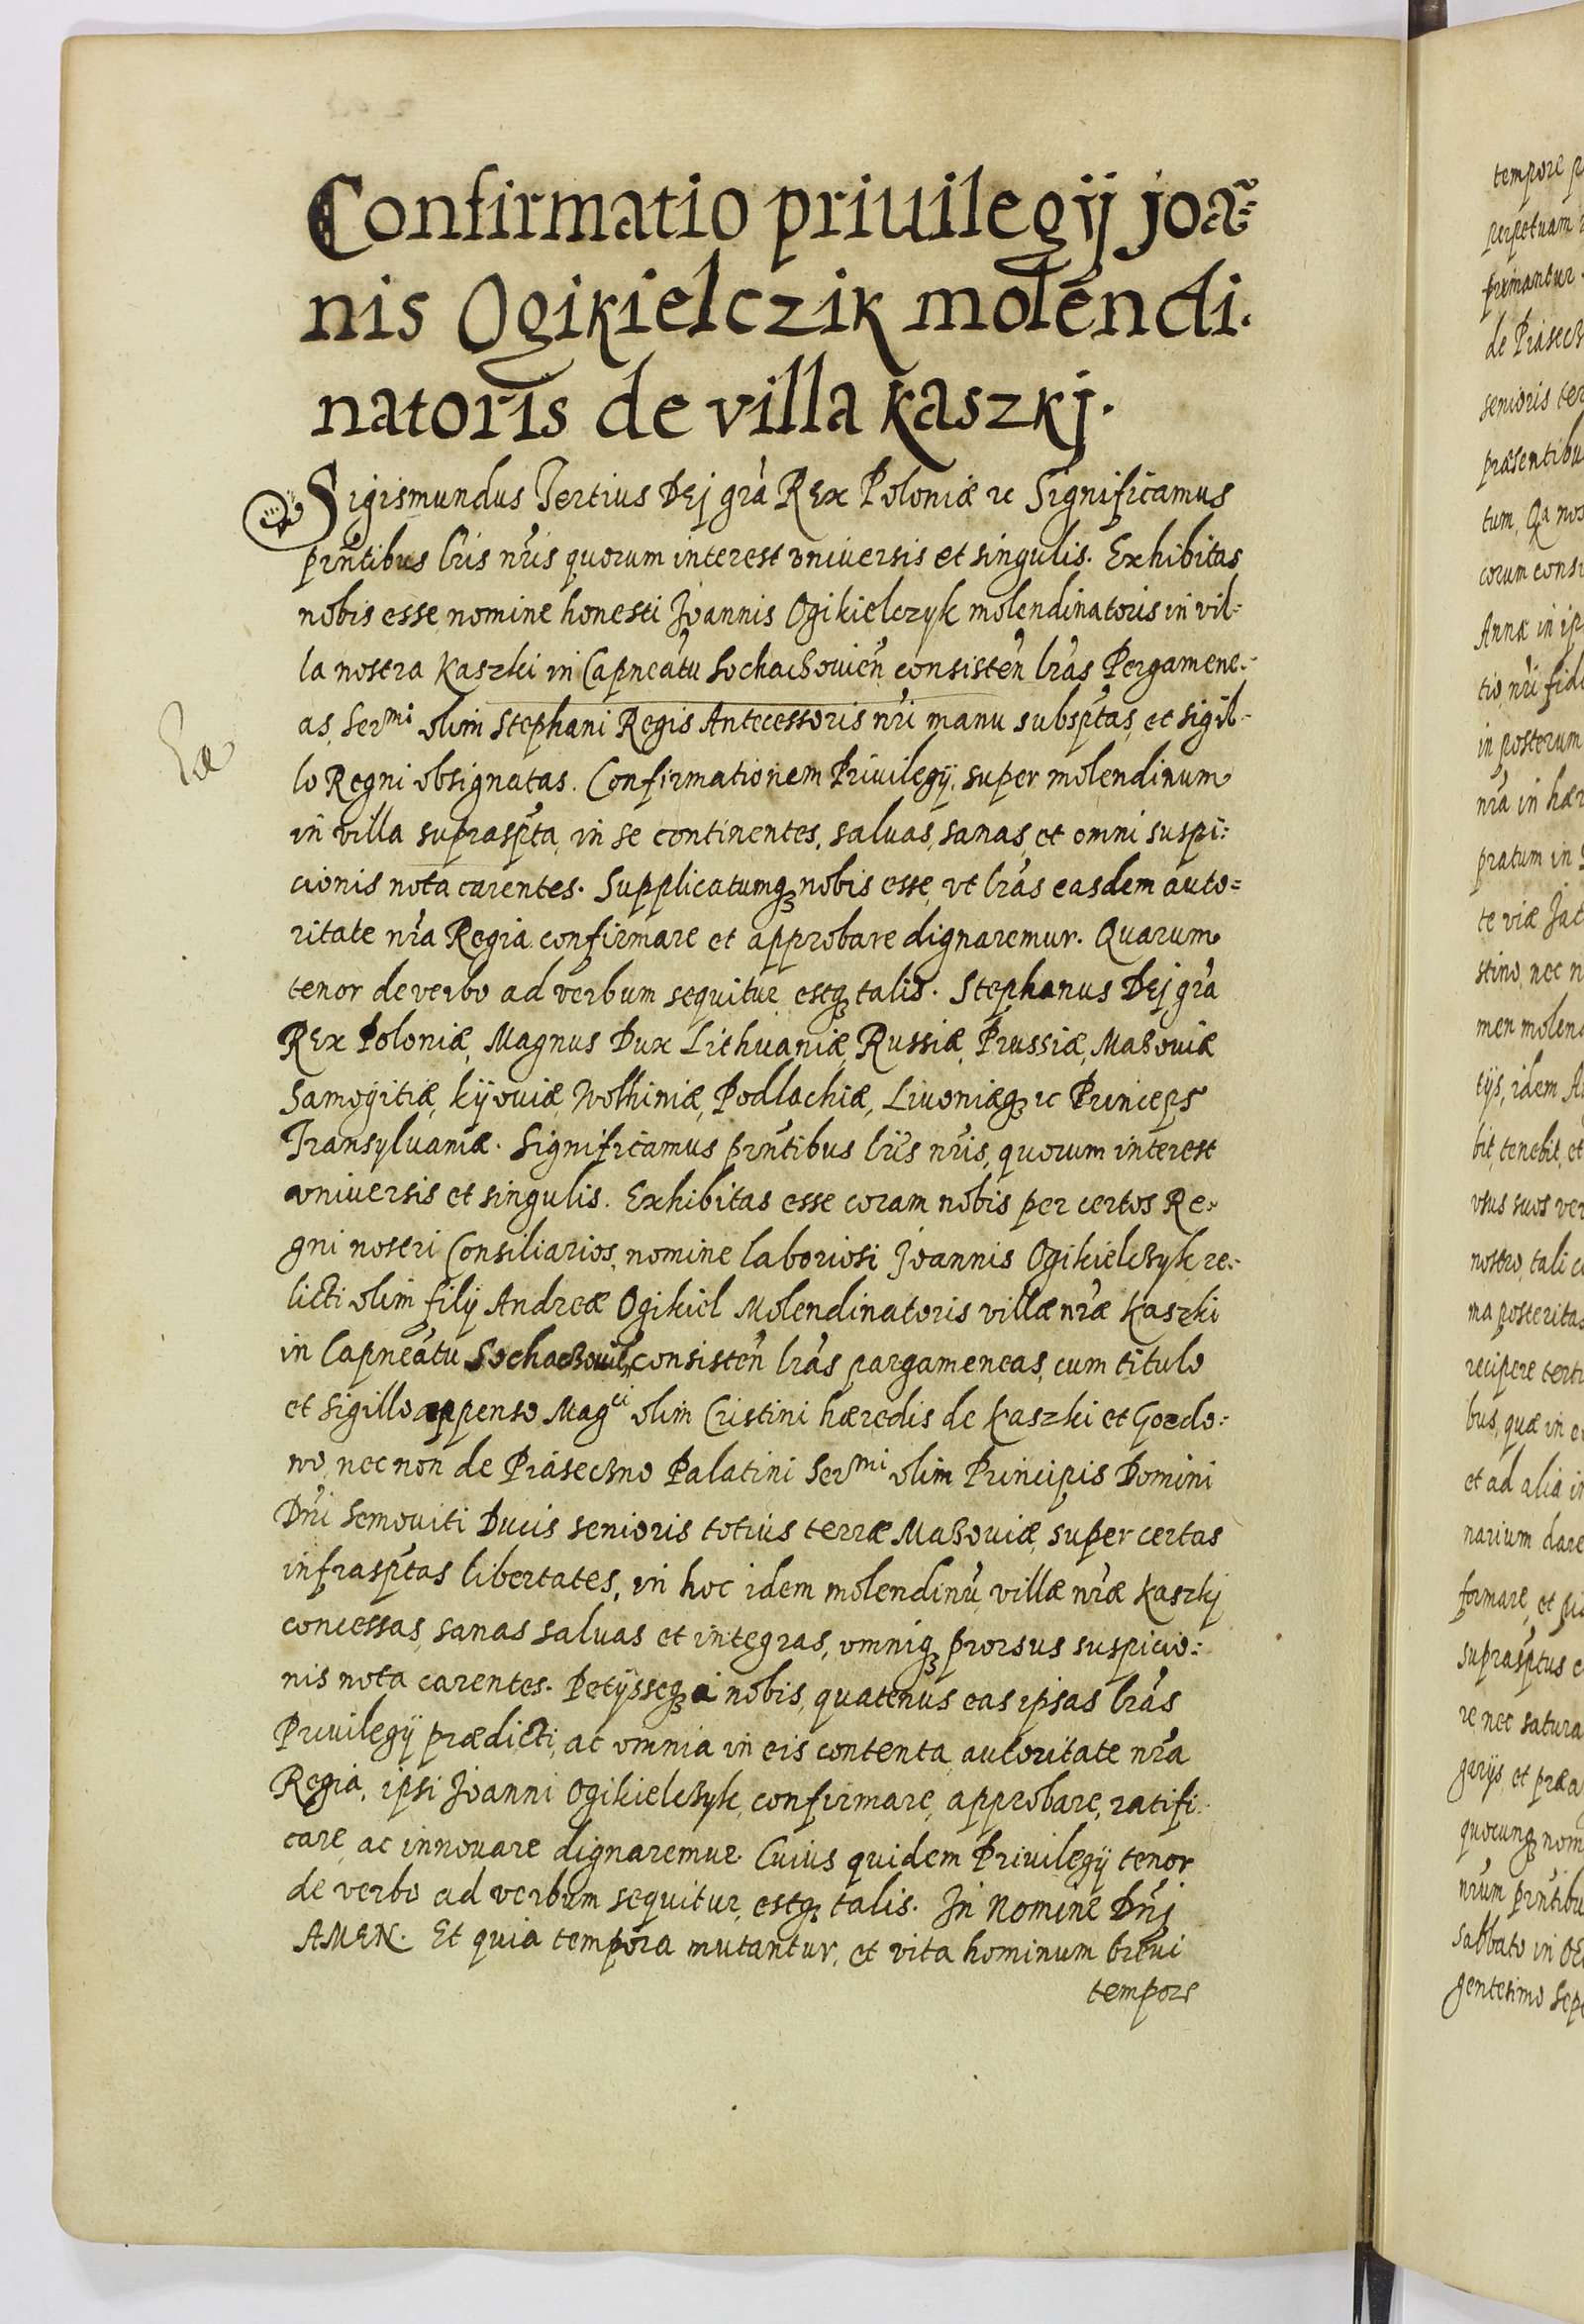 Confirmatio priuilegij joã=
nis Ogikielczik molendi.
natoris de villa kaszkj.
Sigismundus Tertius Dej gra REx Poloniæ ꝛc Significamus
pñtibus lris nris quorum interest vniuersis et singulis. Exhibitas
nobis esse nomine honesti Joannis Ogikielczyk molendinatoris in vil=
la nostra Kaszki in Capneatu Sochaczouien consisten lras Pergamene=
as, Sermi olim Stephani Regis Antecessoris nri manu subsptas, et sigil=
lo Regni obsignatas. Confirmationem Priuilegij, super molendinum
in villa supraspta, in se continentes, saluas, sanas, et omni suspi=
cionis nota carentes. Supplicatumqȝ nobis esse, vt lras easdem auto=
ritate nra Regia confirmare et approbare dignaremur. Quarum
tenor de verbo ad verbum sequitur estqȝ talis. Stephanus Dej gra
REx Poloniæ, Magnus Dux Lithuaniæ, Russiæ, Prussiæ, Masouiæ
Samogitiæ, kijouiæ, Wolhiniæ, Podlachiæ, Liuoniæqȝ ꝛc Princeps
Transyluaniæ. Significamus pñtibus lris nris, quorum interest
vniuersis et singulis. Exhibitas esse coram nobis per certos Re=
gni nostri Consiliarios, nomine laboriosi Joannis Ogikielczyk re=
licti olim filij Andreæ Ogikiel Molendinatoris villæ nræ Kaszki
in Capneatu Sochaczouien consisten lras pargameneas, cum titulo
et sigillo appenso Magci olim Cristini hæredis de Kaszki et Gozdo=
wo, nec non de Piaseczno Palatini Sermi olim Principis Domini
Dni Semouiti Ducis senioris totius terræ Masouiæ, super certas
infrasptas libertates, in hoc idem molendinu villæ nræ Kaszkj
concessas, sanas saluas et integras, omniqȝ prorsus suspicio=
nis nota carentes. Petijsseqȝ a nobis, quatenus eas ipsas lras
Priuilegij prædicti, ac omnia in eis contenta autoritate nra
Regia, ipsi Joanni Ogikielczyk, confirmare, approbare, ratifi=
care, ac innouare dignaremur. Cuius quidem Priuilegij tenor
de verbo ad verbum sequitur, estqȝ talis. In Nomine Dnj
AMEN. Et quia tempora mutantur, et vita hominum breui
tempore
tempore
perpetuam
primantur
de Piasecz
senioris ter
præsentibu
tum, Qa nos
corum consi
Annæ in ip
tio, nri fid
in posterum
nra in hær
pratum in
te viæ Jac
stino, nec n
men molen
tijs, idem A
bit, tenebit, et
vsus suos ver
nostro, tali c
ma posterita
recipere terti
bus, quæ in e
et ad alia i
narium dare
formare, et pi
suprasptus c
re nec satura
garijs, et præa
quocunqȝ nom
nrum pñtibu
Sabbato in Oc
gentesimo Sep